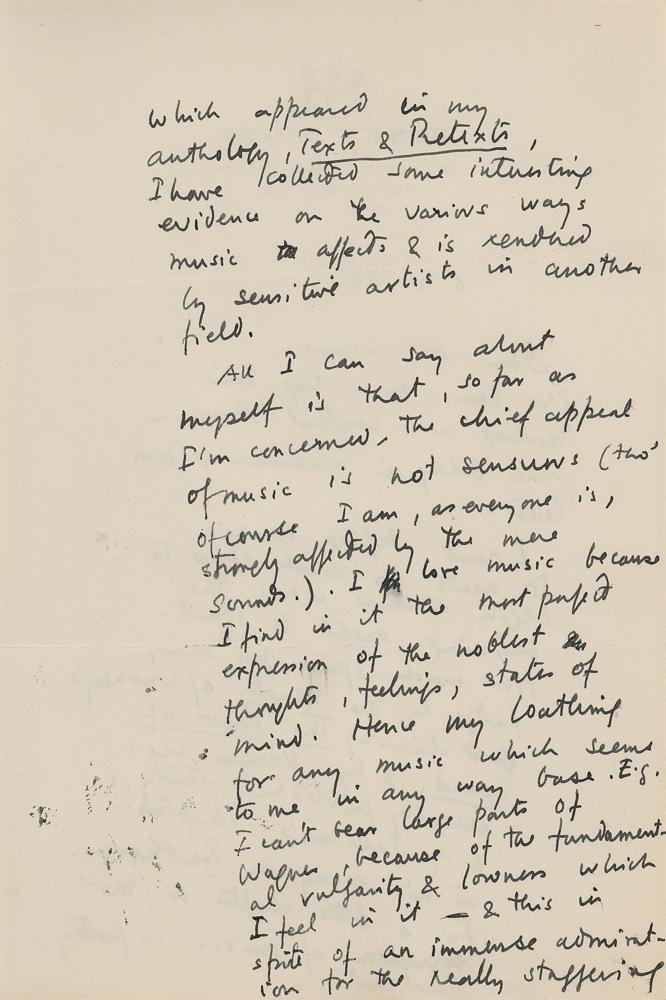 which appeared in my
anthology, Texts & Pretexts,
I have collected some interesting
evidence on the various ways
music affects & is rendered
by sensitive artists in another
field.
All I can say about
myself is that, so far as
I'm concerned, the chief appeal
of music is not sensuous (tho'
of course I am, as everyone is,
strongly affected by the mere
sounds.). I love music because
I find in it the most perfect
expression of the noblest
thoughts, feelings, states of
mind. Hence my loathing
for any music which seems
to me in any way base. E.g.
I can't bear large parts of
Wagner, because of the fundament-
al vulgarity & lowness which
I feel in it — & this in
spite of an immense admirat-
ion for the really staggering